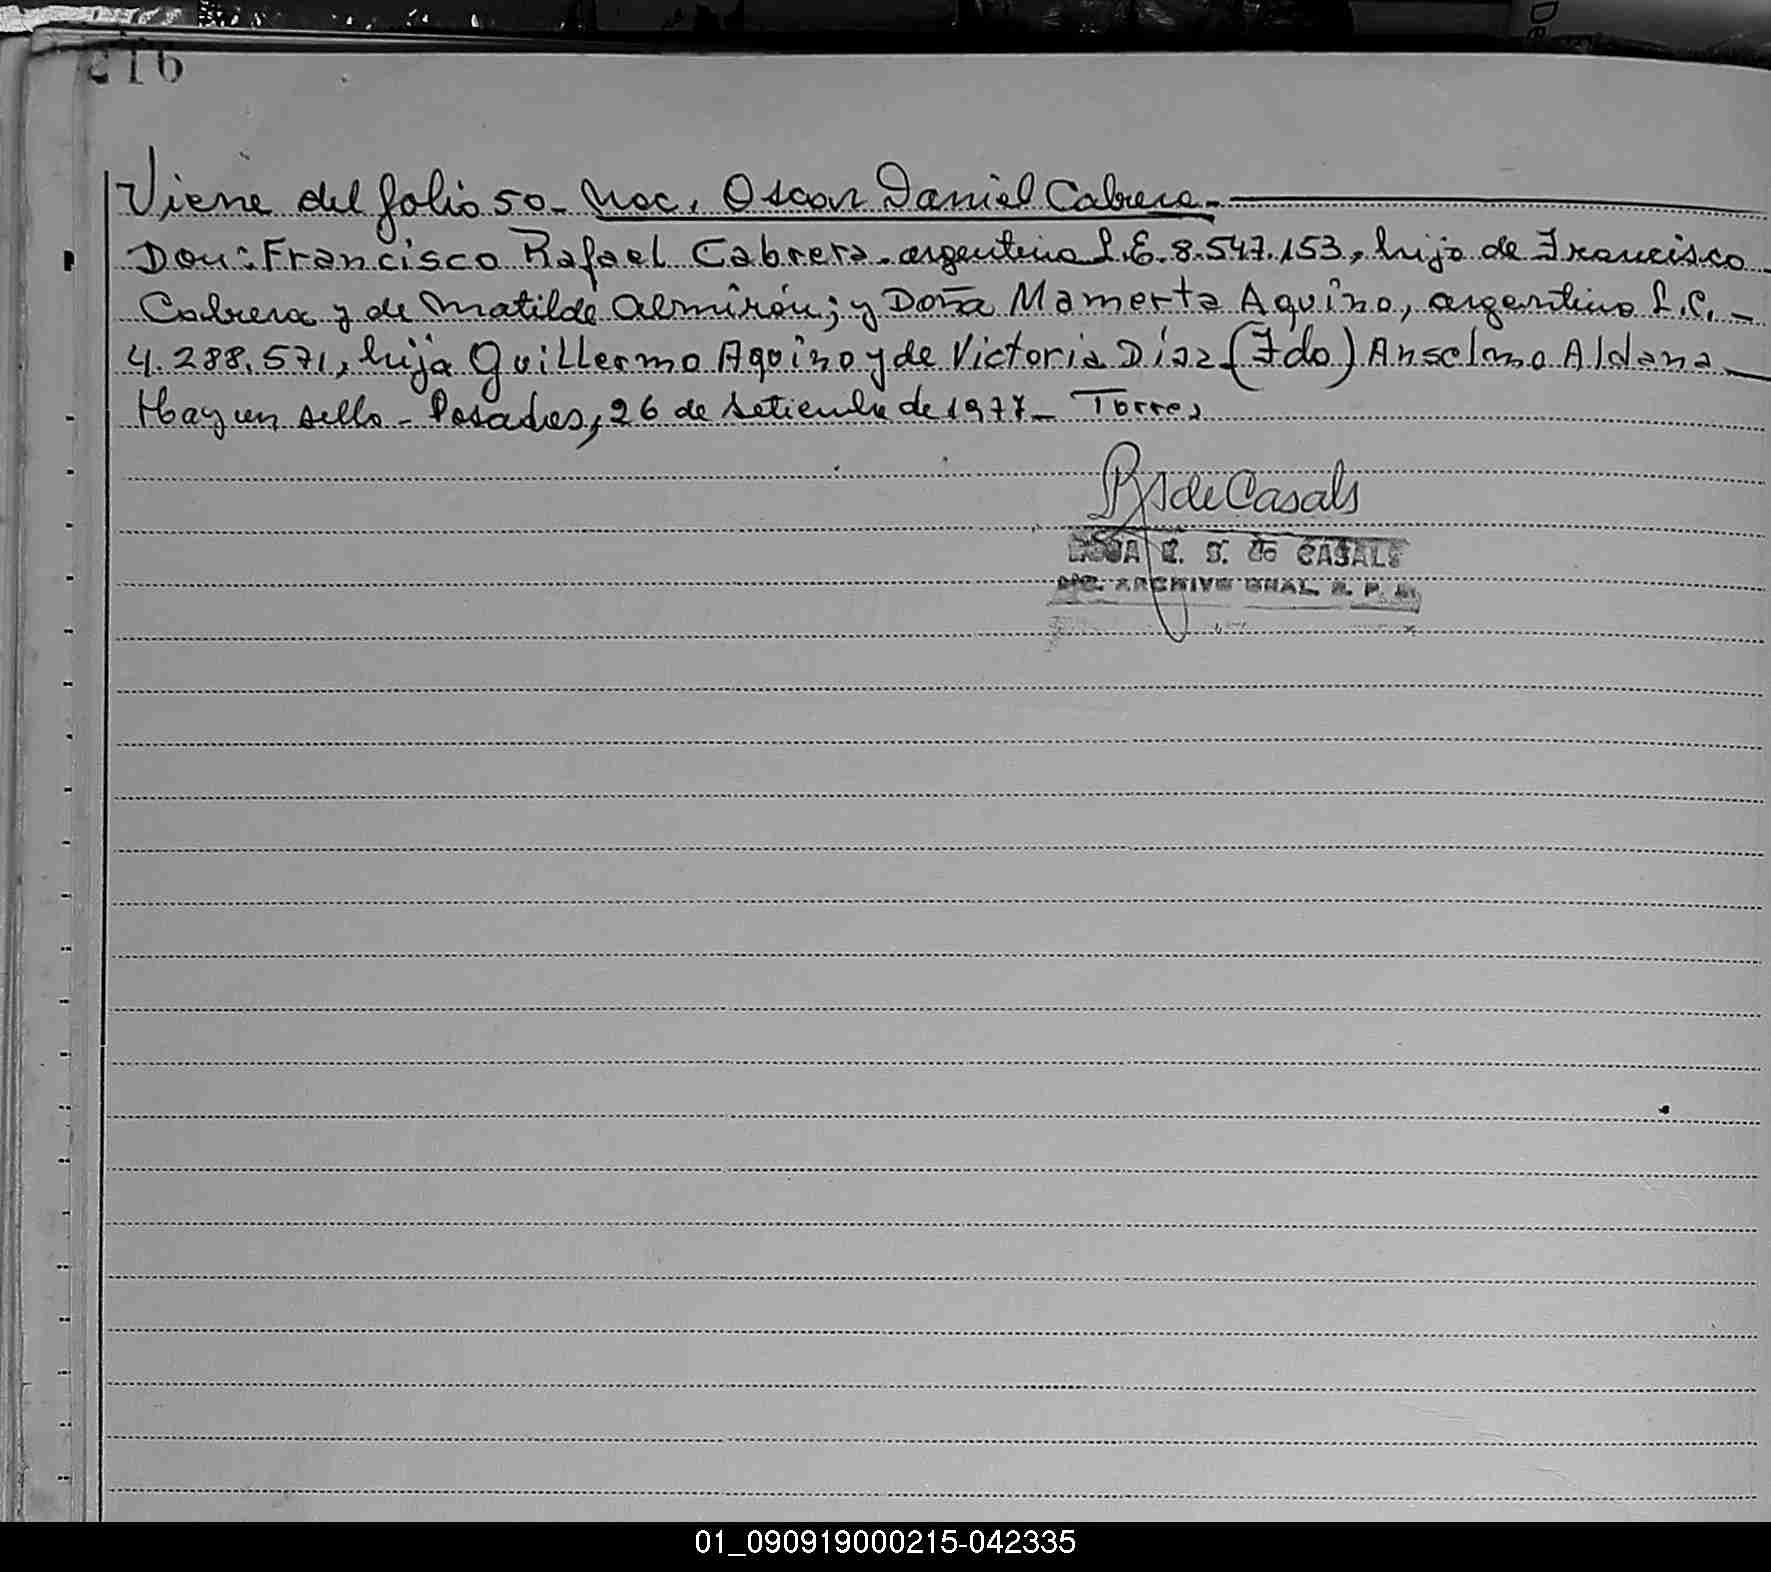 216
Viene del folio 50_ Nac. Oscar Daniel Cabrera._
Don: Francisco Rafael Cabrera. argentino L.E. 8.547.153, hijo de Francisco
Cabrera y de Matilde Almirón; y Doña Mamerta Aquino, argentina L.C._
4.288.571, hija Guillermo Aquino y de Victoria Díaz_(Fdo) Anselmo Aldana_
Hay un sello_ Posadas, 26 de Setiembre de 1977_ Torres
de Casals
E. S. de CASALS
ARCHIVO GRAL. R. P.
01_090919000215-042335